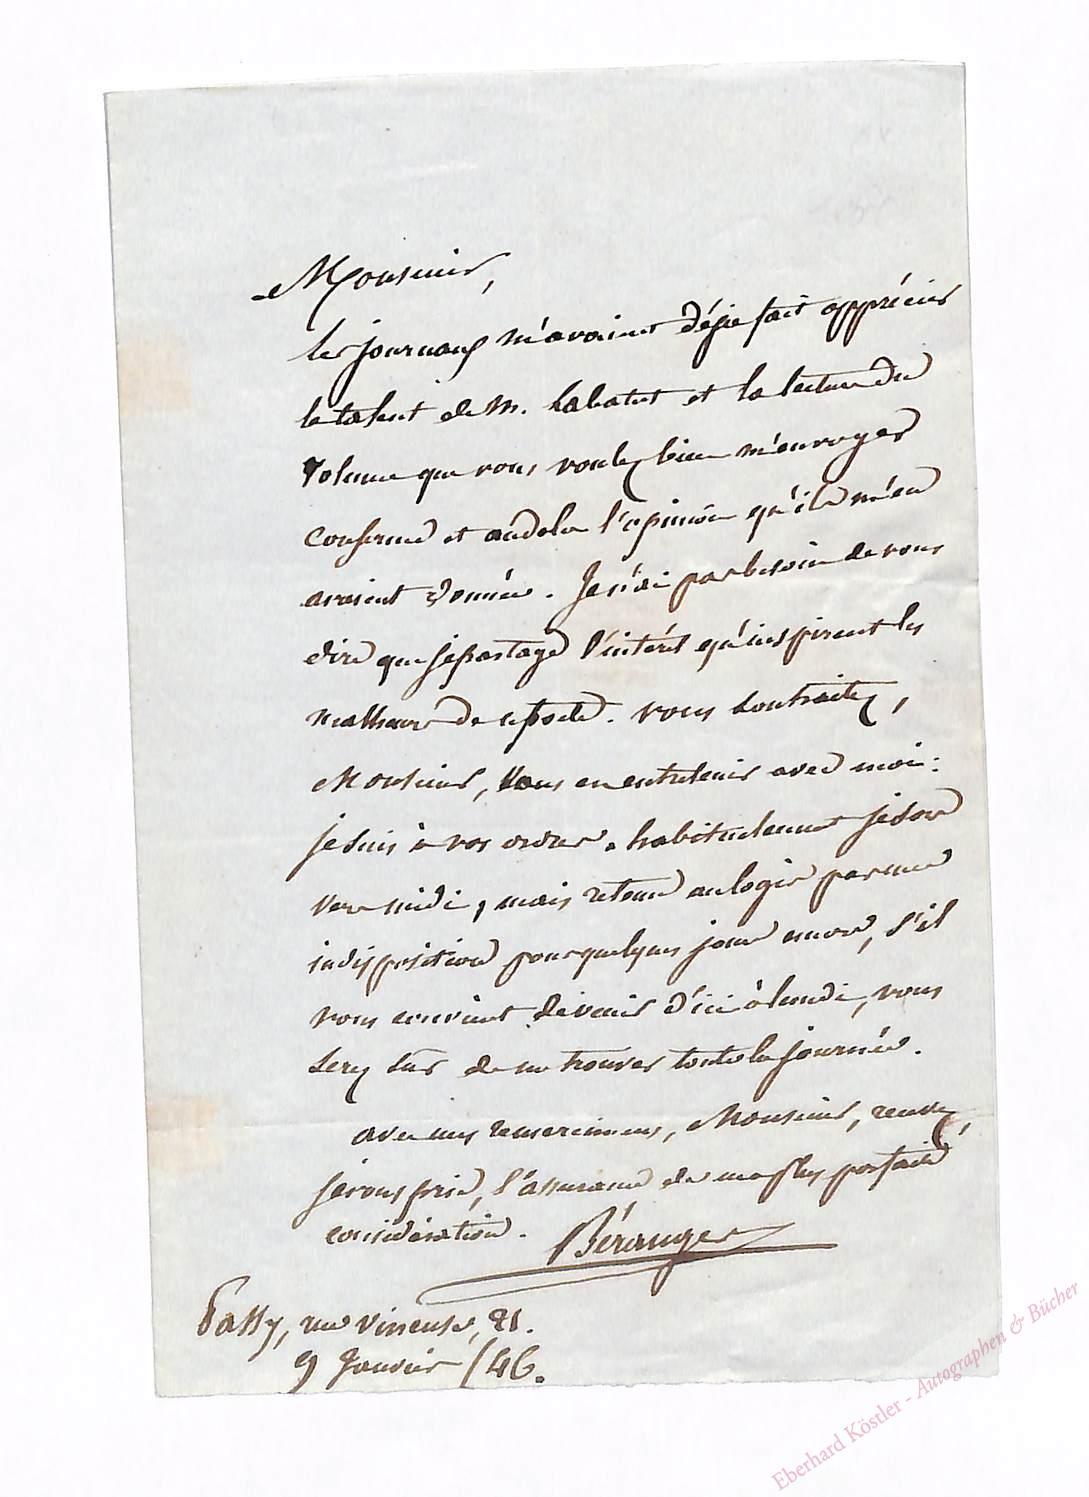 Monsieur,
les journaux m'avaient déjà fait apprécier
le talent de M. Labatut et la lecture du
volume que vous voulez bien m'envoyer
confirme et au delà l'opinion qu'ils m'en
avaient donnée. Je n'ai pas besoin de vous
dire que je partage l'intérêt qu'inspirent les
malheurs de ce poète. Vous souhaitez,
Monsieur, vous en entretenir avec moi :
je suis à vos ordres. habituellement je sors
vers midi, mais retenu au logis par une
indisposition pour quelques jours encore, s'il
vous convient de venir d'ici à lundi, vous
serez sûr de me trouver toute la journée.
avec mes remerciemens, Monsieur, recevez,
je vous prie, l'assurance de ma plus parfaite
considération. Béranger
Passy, rue vineuse, 21.
9 Janvier /46.
Eberhard Köstler - Autographen & Bücher